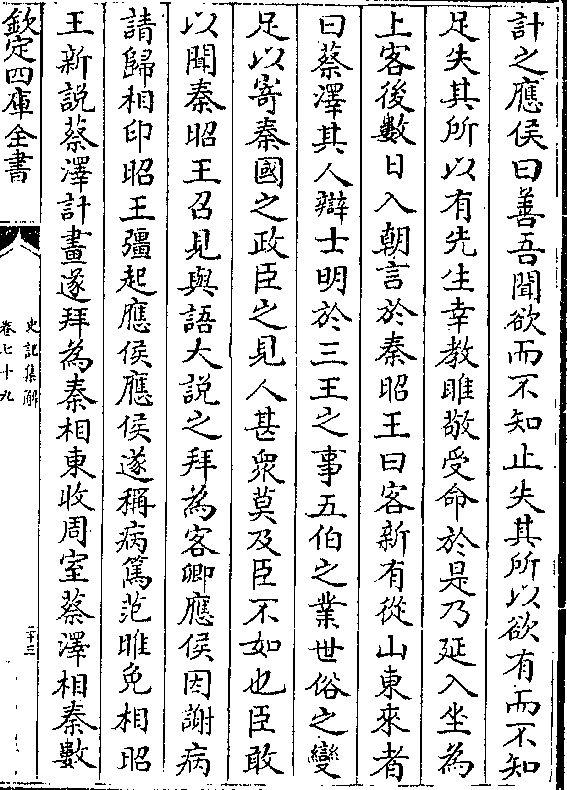 計之應侯曰善吾聞欲而不知止失其所以欲有而不知
足失其所以有先生幸教睢敬受命於是乃延入坐為
上客後數日入朝言於秦昭王曰客新有從山東來者
曰蔡澤其人辯士明於三王之事五伯之業世俗之變
足以寄秦國之政臣之見人甚衆莫及臣不如也臣敢
以聞秦昭王召見與語大説之拜為客卿應侯因謝病
請歸相印昭王彊起應侯應侯遂稱病篤范睢免相昭
王新説蔡澤計畫遂拜為秦相東收周室蔡澤相秦數
欽定四庫全書
史記集解
卷七十九
二十三